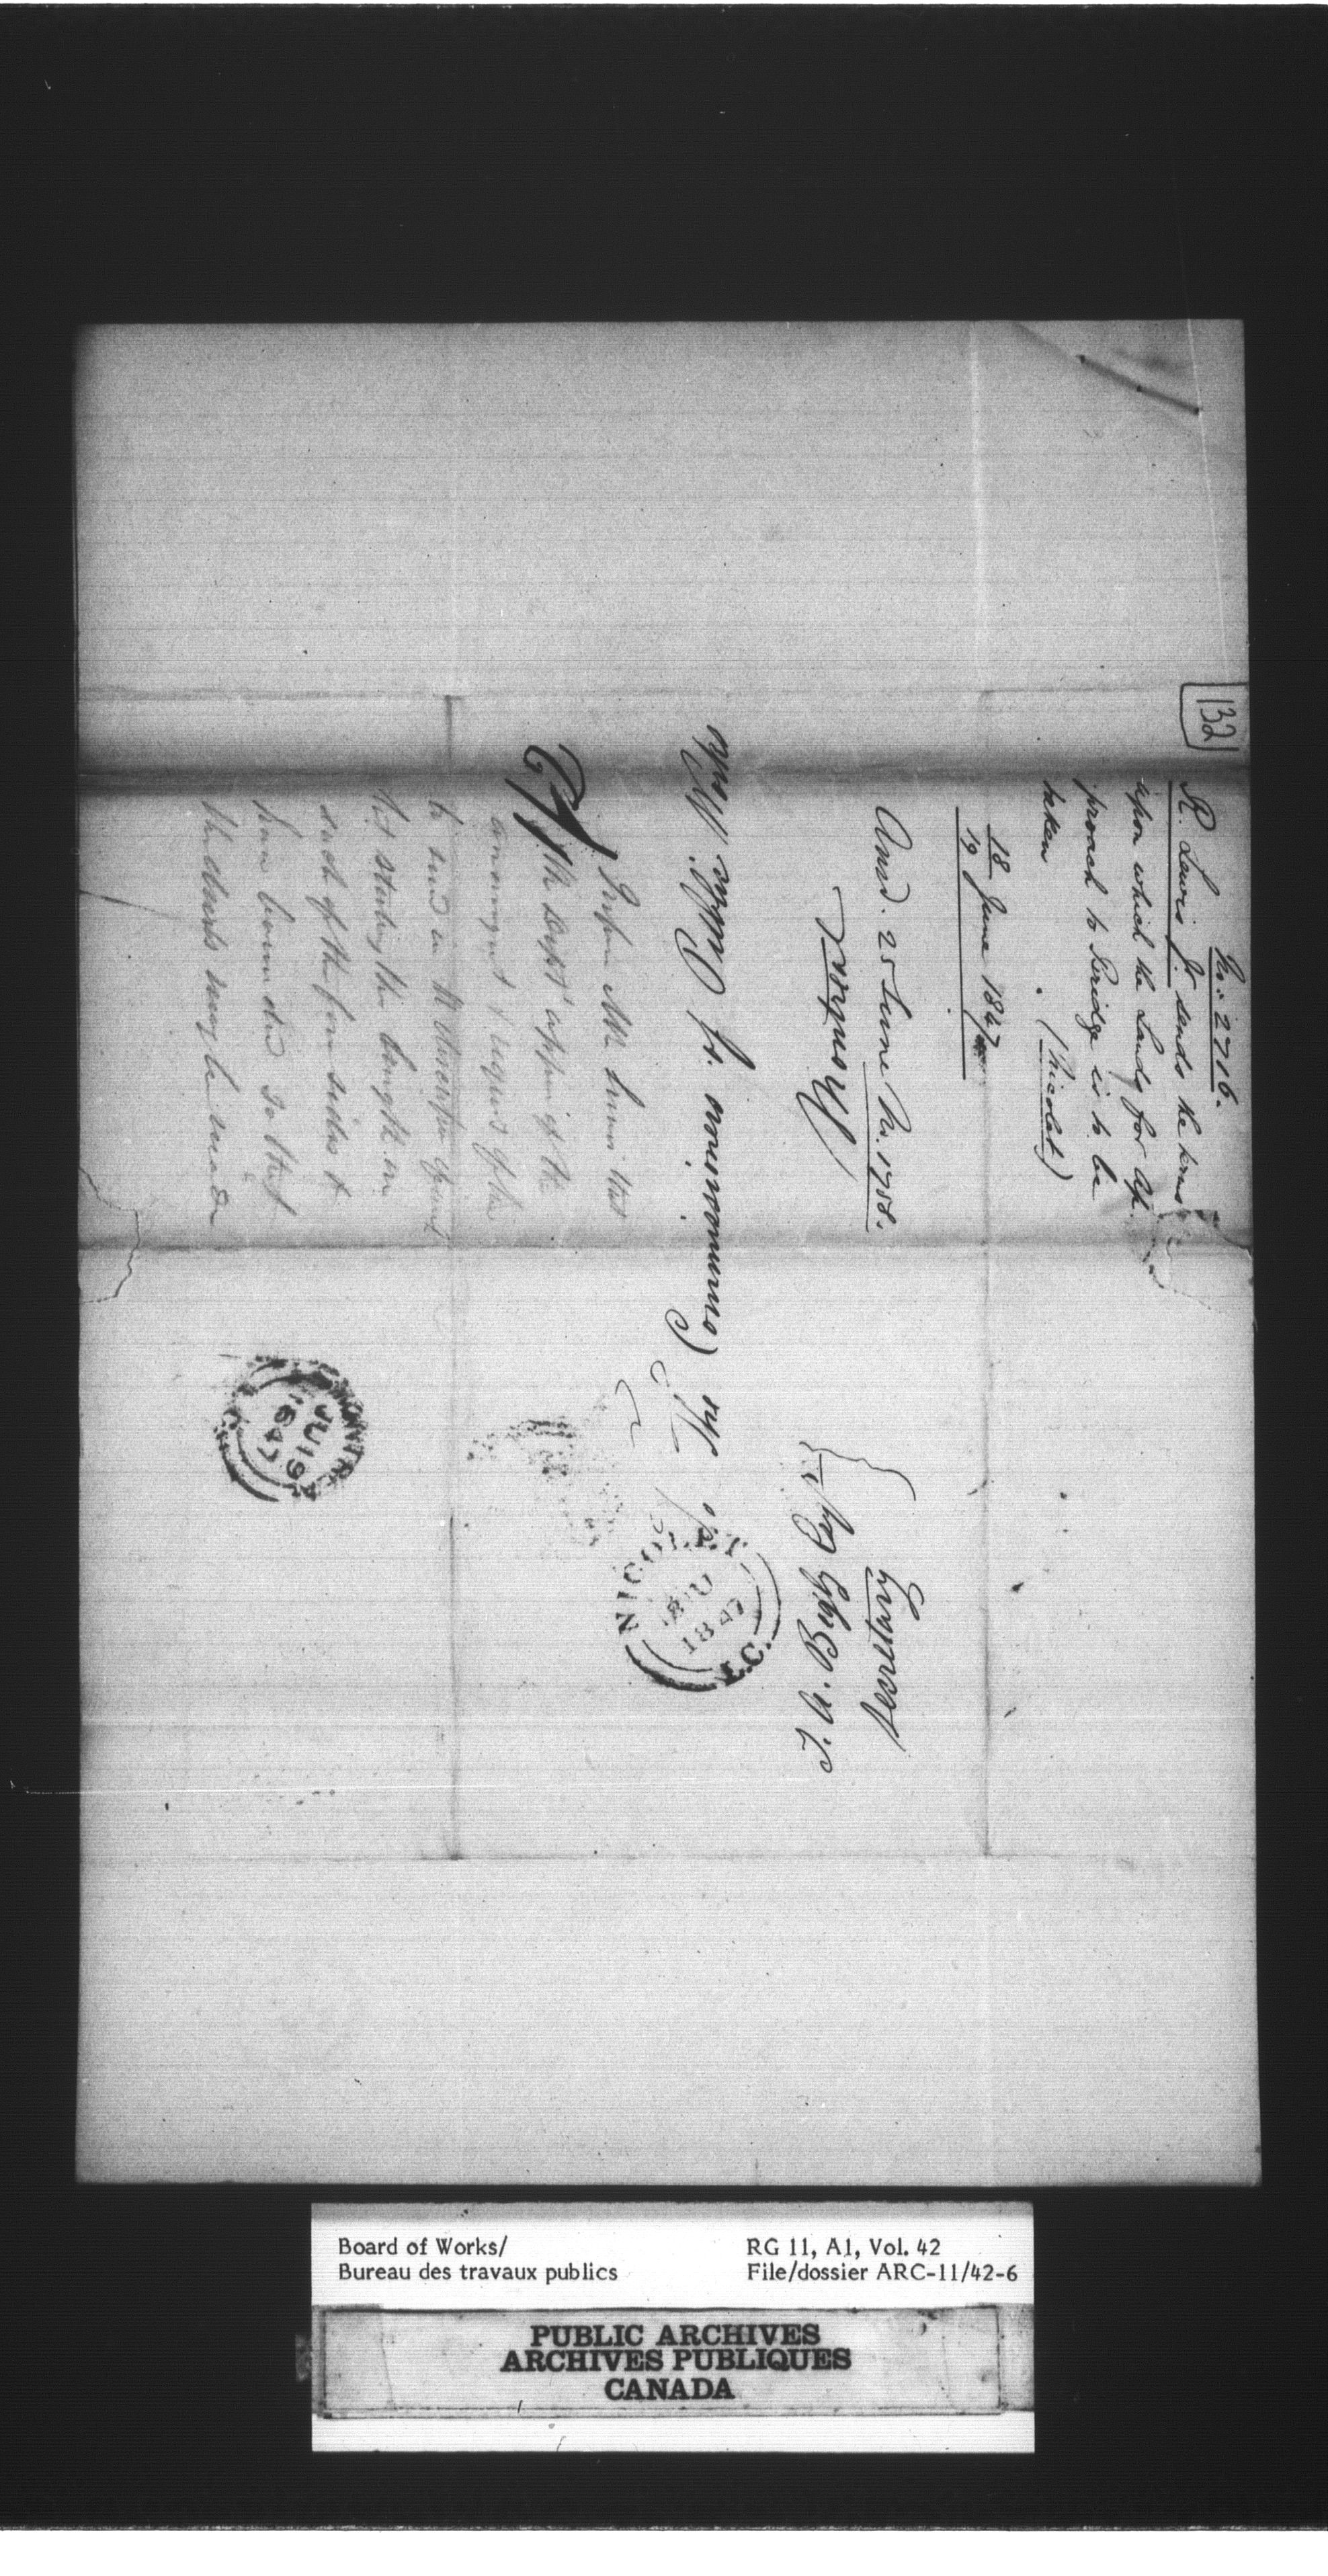 132
No. 2716.
R. Lewis Jr. sends the terms
upon which the Lands for ap
proach to Bridge is to be
taken. (Nicolet)
18/19 June 1847
Ansd. 25 June No. 1758.
Inform Mr Lewis that
the Dept appr of the
arrangmt & request of him
to send in
stating the length on
each of the four sides &
how bounded so that
the deeds may be made
T. A. Begly Esqr.
Secretary
To the Commission of Public Works
Montreal
NICOLET
JU
1847
L.C.
MONTREAL
JU 19
1847
Board of Works/
Bureau des travaux publics
RG 11, A1, Vol. 42
File/dossier ARC-11/42-6
PUBLIC ARCHIVES
ARCHIVES PUBLIQUES
CANADA